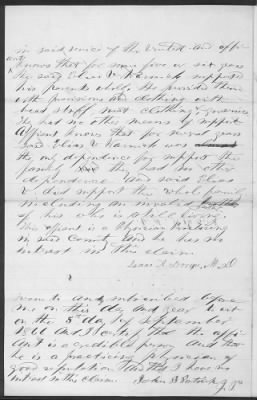 in said service of the United and affi-
ant knows that for some five or six years
the said Elias V Karnick supported
his parents wholly. He provided them
with provisions and clothing with
bread stuffs meat clothing & groceries
They had no other means of support
Affiant knows that for several years
said Elias V Karnick was
the only dependence for support the
family and they had no other
dependence and said Elias
V did support the whole family
including an invalid
of his who is still living.
This affiant is a Physician Practicing
in said County and he has no
interest in this claim.
Isaac M.D
sworn to and subscribed before
me on this day and year
on the 8th day of September
1866 And I certify that the affi-
ant is a credible person And that
he is a practicing physician of
good reputation that I have no
interest in this claim. John B J.P.